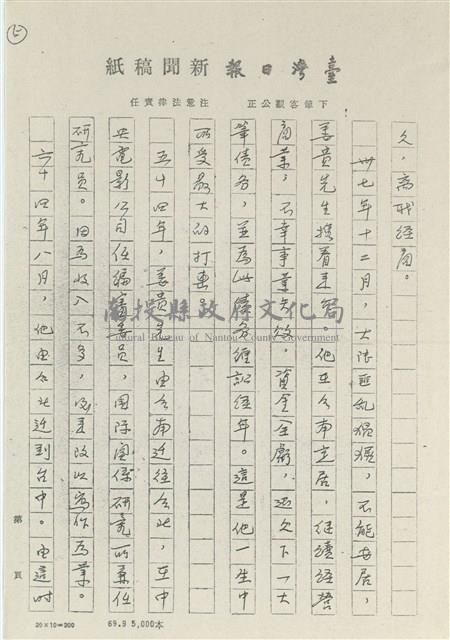 臺灣日報新聞稿紙
下筆客觀公正 注意法律責任
久,商戰經商。
卅七年十二月,大陸匪亂猖獗,不能安居,
姜貴先生携眷來台。他在台南定居,繼續經營
商業,不幸事業失敗,資金全虧,還欠下一大
筆債務,並為此債務纏訟經年。這是他一生中
所受最大的打擊。
五十四年,姜貴先生由台南遷往台北,在中
央電影公司任編審委員,國際關係研究所兼任
研究員。因為收入不多,還是改以寫作為業。
六十四年八月,他由台北遷到台中。由這時
第 頁
20×10=200 69.9 5,000本
南投縣政府文化局
Cultural Bureau of Nantou County Government